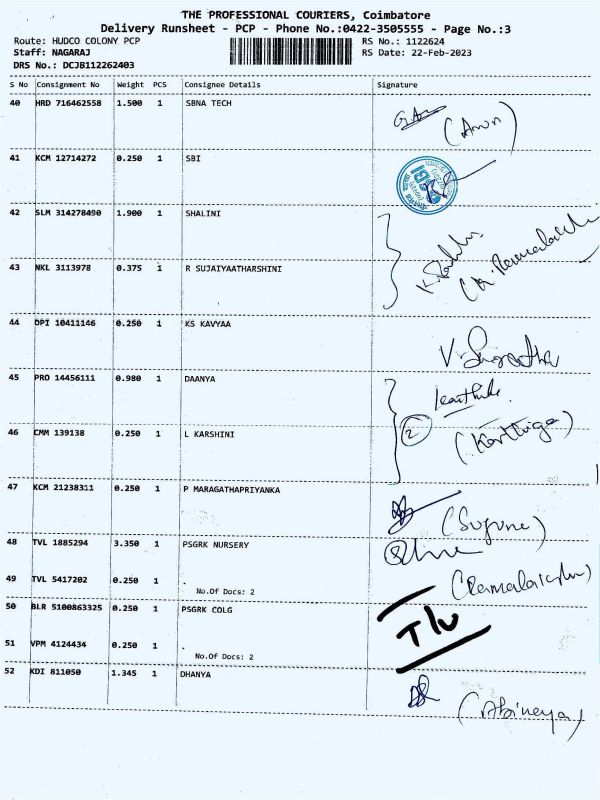 THE PROFESSIONAL COURIERS, Coimbatore
Delivery Runsheet - PCP - Phone No.:0422-3505555 - Page No.:3
Route: HUDCO COLONY PCP RS No.: 1122624
Staff: NAGARAJ RS Date: 22-Feb-2023
DRS No.: DCJB112262403
S No Consignment No Weight PCS Consignee Details Signature
40 HRD 716462558 1.500 1 SBNA TECH
(Arun)
41 KCM 12714272 0.250 1 SBI
42 SLM 314278490 1.900 1 SHALINI
43 NKL 3113978 0.375 1 R SUJAIYAATHARSHINI
44 DPI 10411146 0.250 1 KS KAVYAA
45 PRO 14456111 0.980 1 DAANYA
2
(Karthiga)
46 CMM 139138 0.250 1 L KARSHINI
47 KCM 21238311 0.250 1 P MARAGATHAPRIYANKA
(Suguna)
48 TVL 1885294 3.350 1 PSGRK NURSERY
49 TVL 5417202 0.250 1 .
No.Of Docs: 2
50 BLR 5100863325 0.250 1 PSGRK COLG
51 VPM 4124434 0.250 1 .
No.Of Docs: 2
52 KDI 811050 1.345 1 DHANYA
(Abineya)